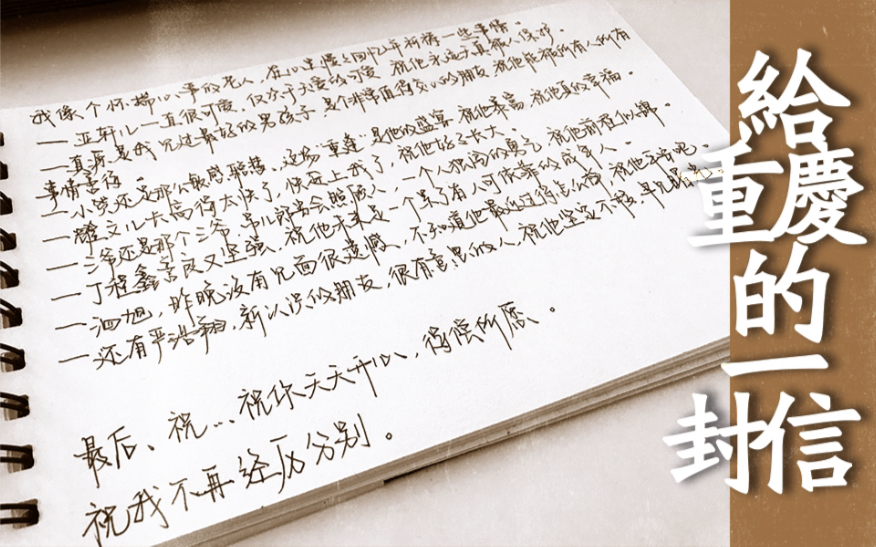 我像个怀揣心事的老人,在小
一亚轩儿一直很可爱,仅次于天爱的可爱,祝他永远天真
一真源是我见过最好的男孩子,是个非常值得交心的朋友,祝他能被所有人的所有
事情善待。
一小贺还是那么敏感聪慧,这场“重逢”是他的盛宴,祝他
一耀文儿长高得太快了,快赶上我了,祝他好好长大。
一三爷还是那个三爷,一个人孤高的勇气,祝他前程似锦。
一丁程鑫善良又坚强,祝他未来是一个某了有人可依靠的成年人。
一泗旭,昨晚没有见面很遗憾,不知道他最近过得怎么样,祝他平安吧。
一还有严浩翔,新认识的朋友,很有意思的人,祝他坚定不移,早见曙光。
最后、祝...祝你天天开心,得偿所愿。
祝我不再经历分别。
給
重慶
的
一
封信